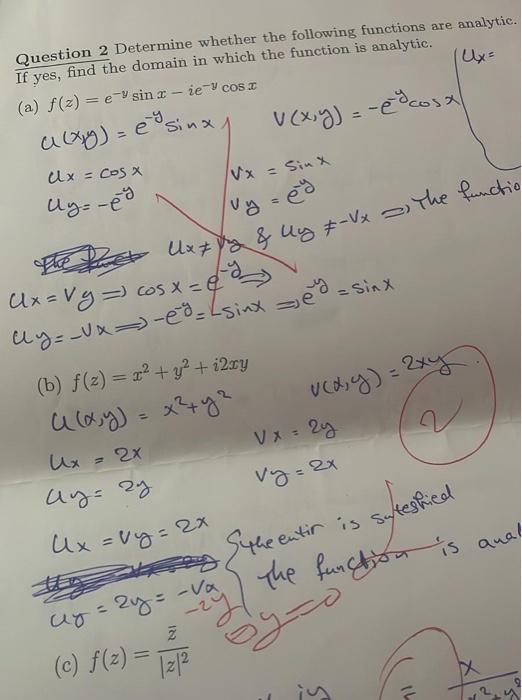 Question 2 Determine whether the following functions are analytic.
If yes, find the domain in which the function is analytic.
(a) f(z) = e^{-y} sin x − ie^{-y} cos x
Ux =
U(x,y) = e^{-y} sinx
V(x,y) = -e^{-y} cosx
Ux = cos x
Vx = sin x
Uy = -e^{-y}
Vy = e^{-y}
Ux ≠ Vy & Uy ≠ -Vx => The functio
Ux = Vy => cos x = e^{-y} =>
Uy = -Vx => -e^{-y} = -sinx => e^{-y} = sinx
(b) f(z) = x² + y² + i2xy
U(x,y) = x² + y²
V(x,y) = 2xy
2
Ux = 2x
Vx = 2y
Uy = 2y
Vy = 2x
Ux = Vy = 2x
is satesfied
The function is anal
Uy = 2y = -Vx
-2y
y=0
(c) f(z) = z̄/|z|²
x